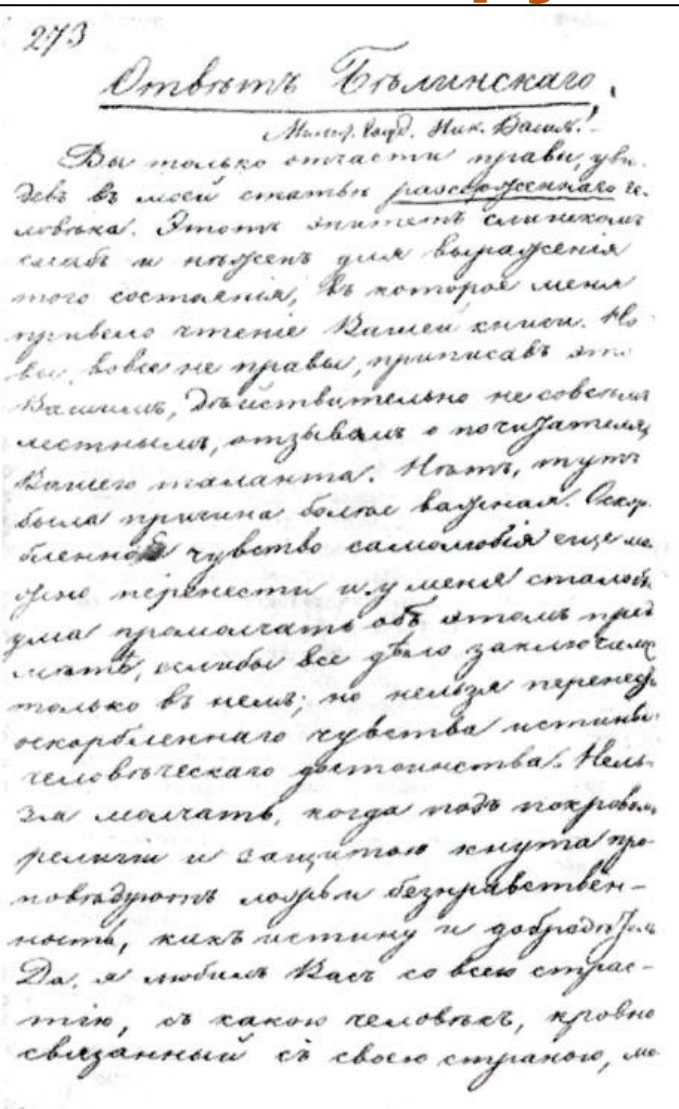 273
Отвѣтъ Бѣлинскаго.
Милост. Госуд. Ник. Васил.!
Вы только отчасти правы, уви-
дѣвъ въ моей статьѣ разсерженнаго че-
ловѣка. Этотъ эпитетъ слишкомъ
слабъ и нѣженъ для выраженія
того состоянія, въ которое меня
привело чтеніе Вашей книги. Но
вы вовсе не правы, приписавъ это
Вашимъ, дѣйствительно не совсѣмъ
лестнымъ, отзывамъ о почитателяхъ
Вашего таланта. Нѣтъ, тутъ
была причина болѣе важная. Оскор-
бленное чувство самолюбія еще мо-
жно перенести и у меня стало бы
ума промолчать объ этомъ пред
метѣ, еслибы все дѣло заключалось
только въ немъ; но нельзя перенести
оскорбленнаго чувства истины
человѣческаго достоинства. Нель-
зя молчать, когда подъ покровомъ
религіи и защитою кнута про-
повѣдуютъ ложь и безнравствен-
ность, какъ истину и добродѣтель
Да, я любилъ Васъ со всею страс-
тію, съ какою человѣкъ, кровно
связанный съ своею страною, мо